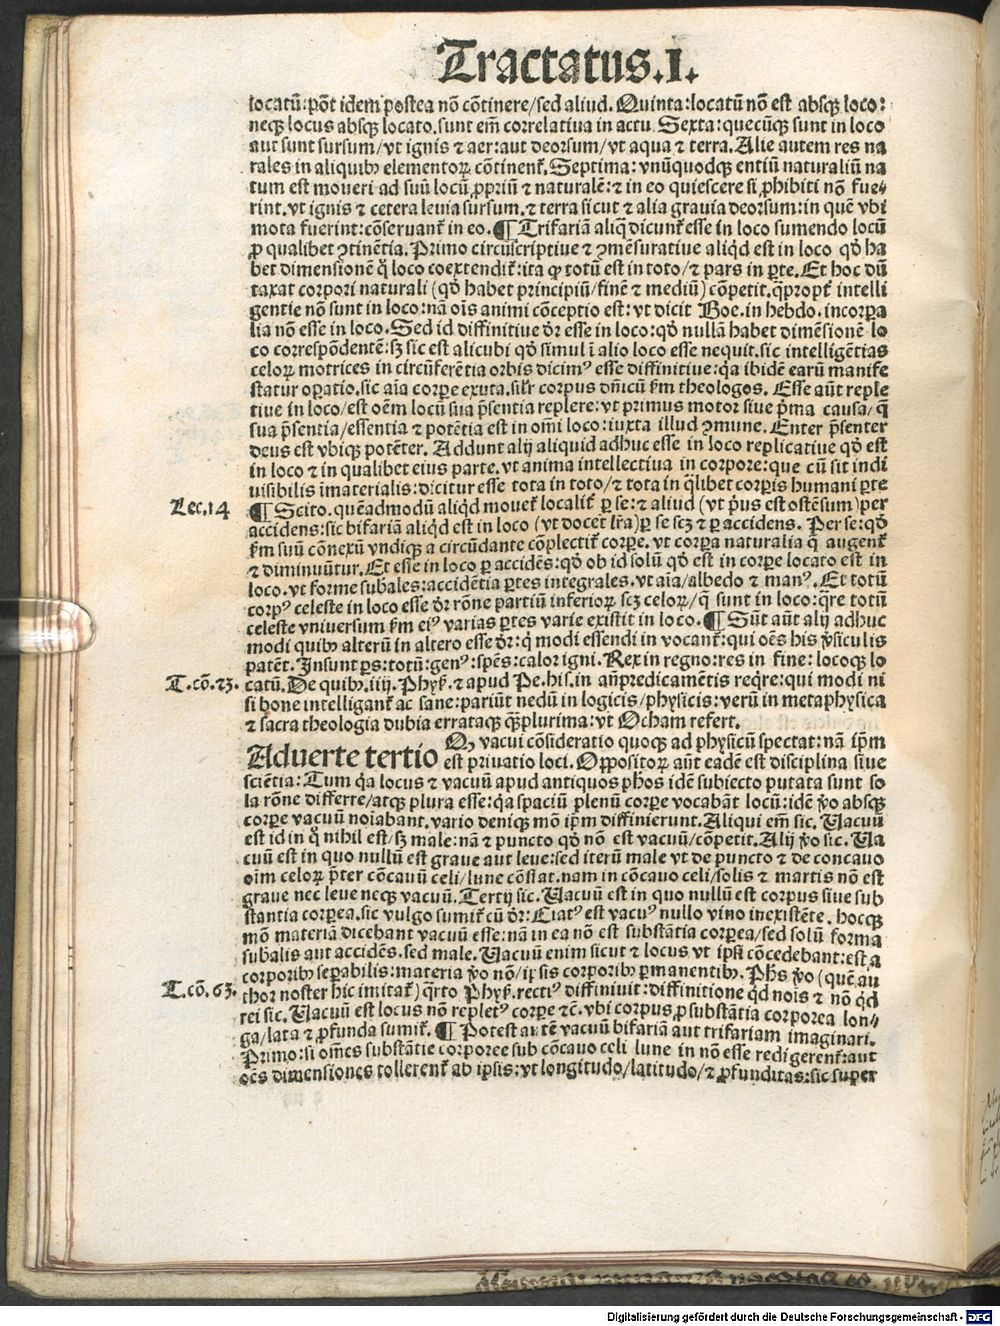 Tractatus.I.
locatū: põt idem postea nō cōtinere/sed aliud. Quinta: locatū nō est absqꝫ loco:
neqꝫ locus absqꝫ locato. sunt em̄ correlatiua in actu. Sexta: quecūqꝫ sunt in loco
aut sunt sursum/vt ignis ⁊ aer: aut deorsum/vt aqua ⁊ terra. Alie autem res na
rales in aliquibꝰ elementoꝝ cōtinent̄. Septima: vnūquodqꝫ entiū naturaliū na
tum est moueri ad suū locū ꝓpriū ⁊ naturalē: ⁊ in eo quiescere si ꝓhibiti nō fue⸗
rint. vt ignis ⁊ cetera leuia sursum. ⁊ terra sicut ⁊ alia grauia deorsum: in quē vbi
mota fuerint: cōseruant̄ in eo. ¶ Trifariā aliq̄ dicunt̄ esse in loco sumendo locū
ꝓ qualibet ꝯtinētia. Primo circūscriptiue ⁊ ꝯmēsuratiue aliqd̄ est in loco qd̄ ha
bet dimensionē q̄ loco coextendit̄: ita ꝙ totū est in toto/⁊ pars in ꝑte. Et hoc dū
taxat corpori naturali (qd̄ habet principiū/finē ⁊ mediū) cōpetit. q̄propt̄ intelli
gentie nō sunt in loco: nā oīs animi cōceptio est: vt dicit Boe. in hebdo. incorpa
lia nō esse in loco. Sed id diffinitiue dr̄ esse in loco: qd̄ nullā habet dimēsionē lo
co correspōdentē: sꝫ sic est alicubi qd̄ simul ī alio loco esse nequit. sic intelligētias
celoꝝ motrices in circūferētia orbis dicimꝰ esse diffinitiue: qa ibidē earū manife
statur oꝑatio. sic aīa corꝑe exuta. silr̄ corpus dn̄icū ẜm theologos. Esse aūt reple
tiue in loco/est oēm locū sua p̄sentia replere: vt primus motor siue p̄ma causa/q̄
sua p̄sentia/essentia ⁊ potētia est in om̄i loco: iuxta illud ꝯmune. Enter p̄senter
deus est vbiqꝫ potēter. Addunt alij aliquid adhuc esse in loco replicatiue qd̄ est
in loco ⁊ in qualibet eius parte. vt anima intellectiua in corpore: que cū sit indi
uisibilis īmaterialis: dicitur esse tota in toto/⁊ tota in q̄libet corꝑis humani ꝑte
Lec.14 ¶ Scito. quēadmodū aliqd̄ mouet̄ localit̄ ꝑ se: ⁊ aliud (vt p̄us est ostēsum) per
accidens: sic bifariā aliqd̄ est in loco (vt docet lr̄a) ꝑ se scꝫ ⁊ ꝑ accidens. Per se: qd̄
ẜm suū cōnexū vndiqꝫ a circūdante cōplectit̄ corꝑe. vt corꝑa naturalia q̄ augent̄
⁊ diminuūtur. Et esse in loco ꝑ accidēs: qd̄ ob id solū qd̄ est in corꝑe locato est in
loco. vt forme subales: accidētia ꝑtes integrales. vt aīa/albedo ⁊ manꝰ. Et totū
corpꝰ celeste in loco esse dr̄ rōne partiū inferioꝝ scꝫ celoꝝ/q̄ sunt in loco: q̄re totū
celeste vniuersum ẜm eiꝰ varias ꝑtes varie existit in loco. ¶ Sūt aūt alij adhuc
modi quibꝰ alterū in altero esse dr̄: q̄ modi essendi in vocant̄: qui oēs his v̄siculis
patēt. Insunt ꝑs: totū: genꝰ: spēs: calor igni. Rex in regno: res in fine: locoqꝫ lo
T. cō. 23. catū. De quibꝰ. iiij. Phyẜ. ⁊ apud Pe. his. in an̄predicamētis req̄re: qui modi ni
si bone intelligant̄ ac sane: pariūt nedū in logicis/physicis: verū in metaphysica
⁊ sacra theologia dubia errataqꝫ q̄ꝫplurima: vt Ocham refert.
Aduerte tertio Qꝫ vacui cōsideratio quoqꝫ ad physicū spectat: nā ip̄m
est priuatio loci. Oppositoꝝ aūt eadē est disciplina siue
sciētia: Tum qa locus ⁊ vacuū apud antiquos ph̄os idē subiecto putata sunt so
la rōne differre/atqꝫ plura esse: qa spaciū plenū corꝑe vocabāt locū: idē v̄o absqꝫ
corꝑe vacuū noīabant. vario deniqꝫ mō ip̄m diffinierunt. Aliqui em̄ sic. Uacuū
est id in q̄ nihil est/sꝫ male: nā ⁊ puncto qd̄ nō est vacuū/cōpetit. Alij v̄o sic. Ua
cuū est in quo nullū est graue aut leue: sed iterū male vt de puncto ⁊ de concauo
oīm celoꝝ p̄ter cōcauū celi/lune cōstat. nam in cōcauo celi/solis ⁊ martis nō est
graue nec leue neqꝫ vacuū. Tertij sic. Uacuū est in quo nullū est corpus siue sub
stantia corꝑea. sic vulgo sumit̄ cū dr̄: Ciatꝰ est vacuꝰ nullo vino inexistēte. hocqꝫ
mō materiā dicebant vacuū esse: nā in ea nō est substātia corꝑea/sed solū forma
subalis aut accidēs. sed male. Uacuū enim sicut ⁊ locus vt ipsi cōcedebant: est a
corporibꝰ seꝑabilis: materia v̄o nō/ipsis corporibꝰ ꝑmanentibꝰ. Ph̄s v̄o (quē au
T. cō. 63. thor noster hic imitat̄) q̄rto Phyẜ. rectiꝰ diffiniuit: diffinitione qd̄ nois ⁊ nō qd̄
rei sic. Uacuū est locus nō repletꝰ corꝑe ⁊c̄. vbi corpus ꝓ substātia corporea lon⸗
ga/lata ⁊ ꝓfunda sumit̄. ¶ Potest autē vacuū bifariā aut trifariam imaginari.
Primo: si om̄es substātie corporee sub cōcauo celi lune in nō esse redigerent̄: aut
oēs dimensiones tollerent̄ ab ipsis: vt longitudo/latitudo/⁊ ꝓfunditas: sic super
Digitalisierung gefördert durch die Deutsche Forschungsgemeinschaft - DFG